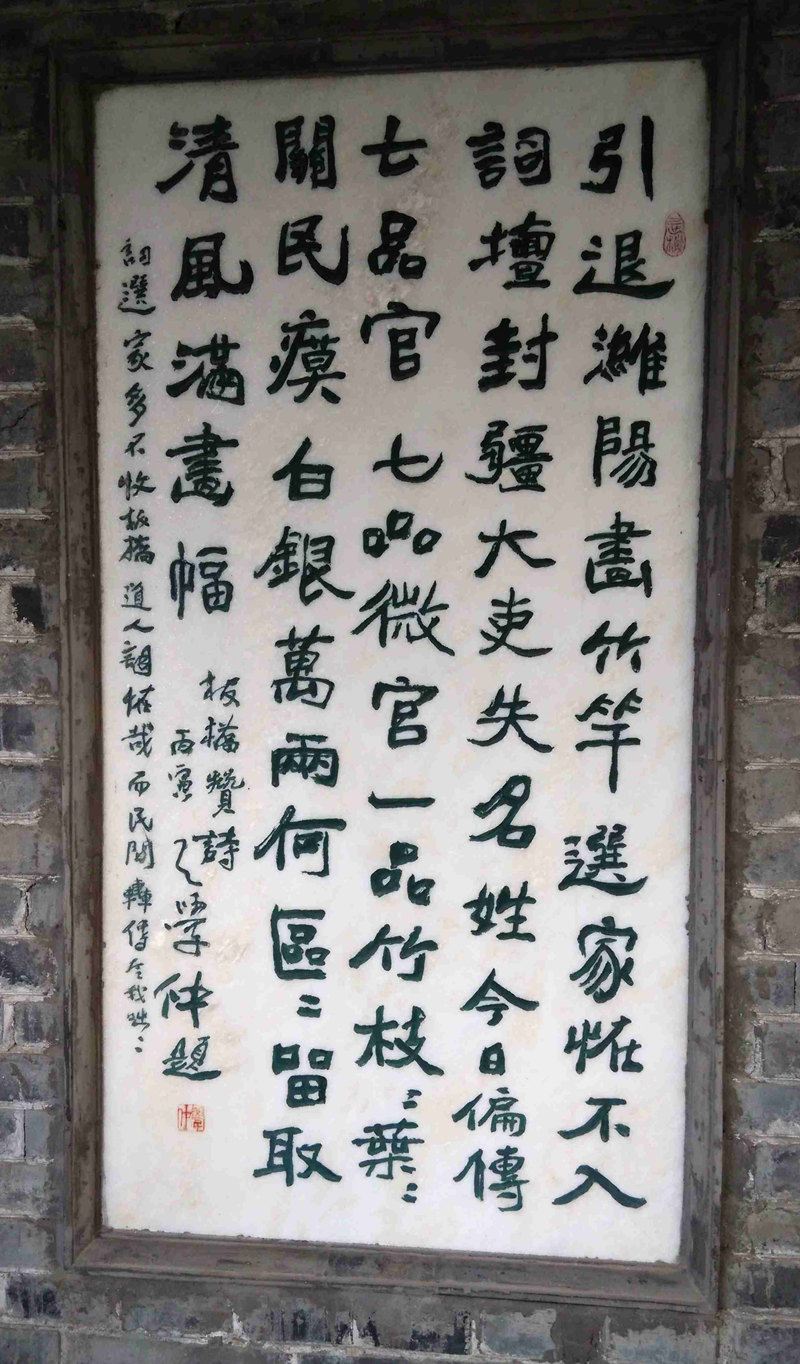 引退濰陽畫竹竿選家恠不入
詞壇封疆大吏失名姓今日偏傳
七品官 七品微官一品竹枝〻葉〻
關民瘼白銀萬兩何區〻留取
清風滿畫幅
板橋贊詩
丙寅
學仲題
詞選家多不收板橋道人詞恠哉而民間轟傳